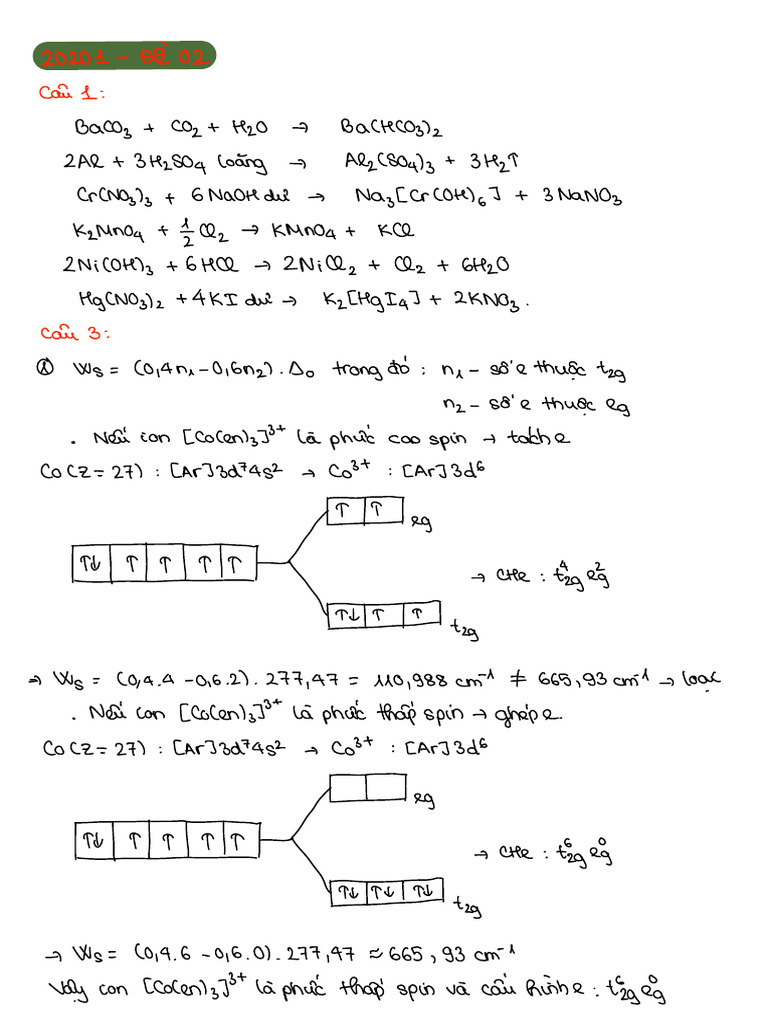 20201 - ĐỀ 02
Câu 1:
BaCO₃ + CO₂ + H₂O → Ba(HCO₃)₂
2Al + 3H₂SO₄ loãng → Al₂(SO₄)₃ + 3H₂↑
Cr(NO₃)₃ + 6NaOH dư → Na₃[Cr(OH)₆] + 3NaNO₃
K₂MnO₄ + 1/2 Cl₂ → KMnO₄ + KCl
2Ni(OH)₃ + 6HCl → 2NiCl₂ + Cl₂ + 6H₂O
Hg(NO₃)₂ + 4KI dư → K₂[HgI₄] + 2KNO₃.
Câu 3:
① Ws = (0,4n₁ - 0,6n₂).Δ₀ trong đó : n₁ - số e thuộc t₂g
n₂ - số e thuộc eg
. Nếu ion [Co(en)₃]³⁺ là phức cao spin → tách e
Co(Z=27) : [Ar]3d⁷4s² → Co³⁺ : [Ar]3d⁶
↑ ↑ eg
↑↓ ↑ ↑ ↑ ↑
→ CHe : t₂g⁴ eg²
↑↓ ↑ ↑ t₂g
→ Ws = (0,4.4 - 0,6.2). 277,47 = 110,988 cm⁻¹ ≠ 665,93 cm⁻¹ → loại
. Nếu ion [Co(en)₃]³⁺ là phức thấp spin → ghép e.
Co(Z=27) : [Ar]3d⁷4s² → Co³⁺ : [Ar]3d⁶
eg
↑↓ ↑ ↑ ↑ ↑
→ CHe : t₂g⁶ eg⁰
↑↓ ↑↓ ↑↓ t₂g
→ Ws = (0,4.6 - 0,6.0). 277,47 ≈ 665,93 cm⁻¹
Vậy ion [Co(en)₃]³⁺ là phức thấp spin và cấu hình e : t₂g⁶ eg⁰